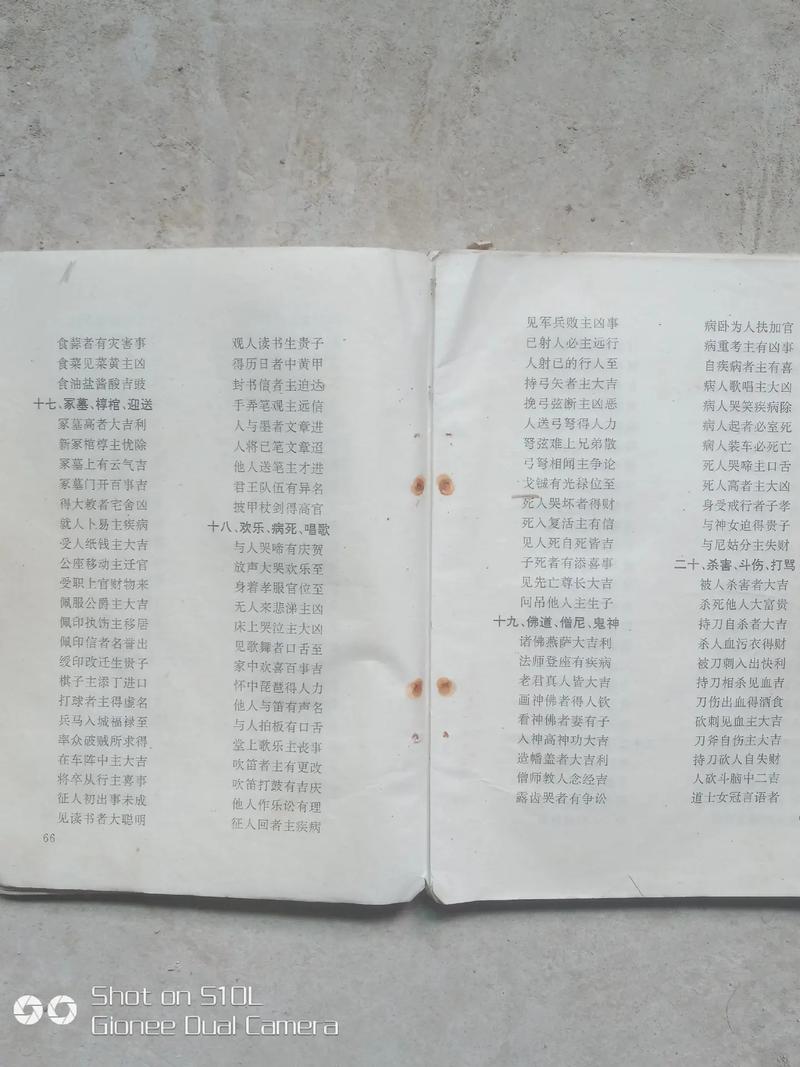 食蒜者有灾害事
食菜见菜黄主凶
食油盐酱酸吉豉
十七、冢墓、椁棺、迎送
冢墓高者大吉利
新冢棺椁主忧除
冢墓上有云气吉
冢墓门开百事吉
得大教者宅舍凶
就人卜易主疾病
受人纸钱主大吉
公座移动主迁官
受职上官财物来
佩服公爵主大吉
佩印执饰主移居
佩印信者名誉出
绶印改迁生贵子
棋子主添丁进口
打球者主得虚名
兵马入城福禄至
率众破贼所求得
在车阵中主大吉
将卒从行主喜事
征人初出事未成
见读书者大聪明
66
观人读书生贵子
得历日者中黄甲
封书信者主迫达
手弄笔观主远信
人与墨者文章进
人将已笔文章迢
他人送笔主才进
君王队伍有异名
披甲杖剑得高官
十八、欢乐、病死、唱歌
与人哭啼有庆贺
放声大哭欢乐至
身着孝服官位至
无人来悲涕主凶
床上哭泣主大凶
见歌舞者口舌至
家中欢喜百事吉
怀中琵琶得人力
他人与笛有声名
与人拍板有口舌
堂上歌乐主丧事
吹笛者主有更改
吹笛打鼓有吉庆
他人作乐讼有理
征人回者主疾病
见军兵败主凶事
已射人必主远行
人射已的行人至
持弓矢者主大吉
挽弓弦断主凶恶
人送弓弩得人力
弩弦难上兄弟散
弓弩相闻主争论
戈钺有光禄位至
死人哭坏者得财
死入复活主有信
见人死自死皆吉
子死者有添喜事
见先亡尊长大吉
问吊他人主生子
十九、佛道、僧尼、鬼神
诸佛燕萨大吉利
法师登座有疾病
老君真人皆大吉
画神佛者得人钦
看神佛者妻有子
入神高神功大吉
造幡盖者大吉利
僧师教人念经吉
露齿哭者有争讼
病卧为人扶加官
病重考主有凶事
自疾病者主有喜
病人歌唱主大凶
病人哭笑疾病除
病人起者必室死
病人装车必死亡
死人哭啼主口舌
死人高者主大凶
身受戒行者子孝
与神女追得贵子
与尼姑分主失财
二十、杀害、斗伤、打骂
被人杀害者大吉
杀死他人大富贵
持刀自杀者大吉
杀人血污衣得财
被刀刺入出快利
持刀相杀见血吉
刀伤出血得酒食
砍刺见血主大吉
刀斧自伤主大吉
持刀砍人自失财
人砍斗脑中二吉
道士女冠言语者
Shot on S10L
Gionee Dual Camera